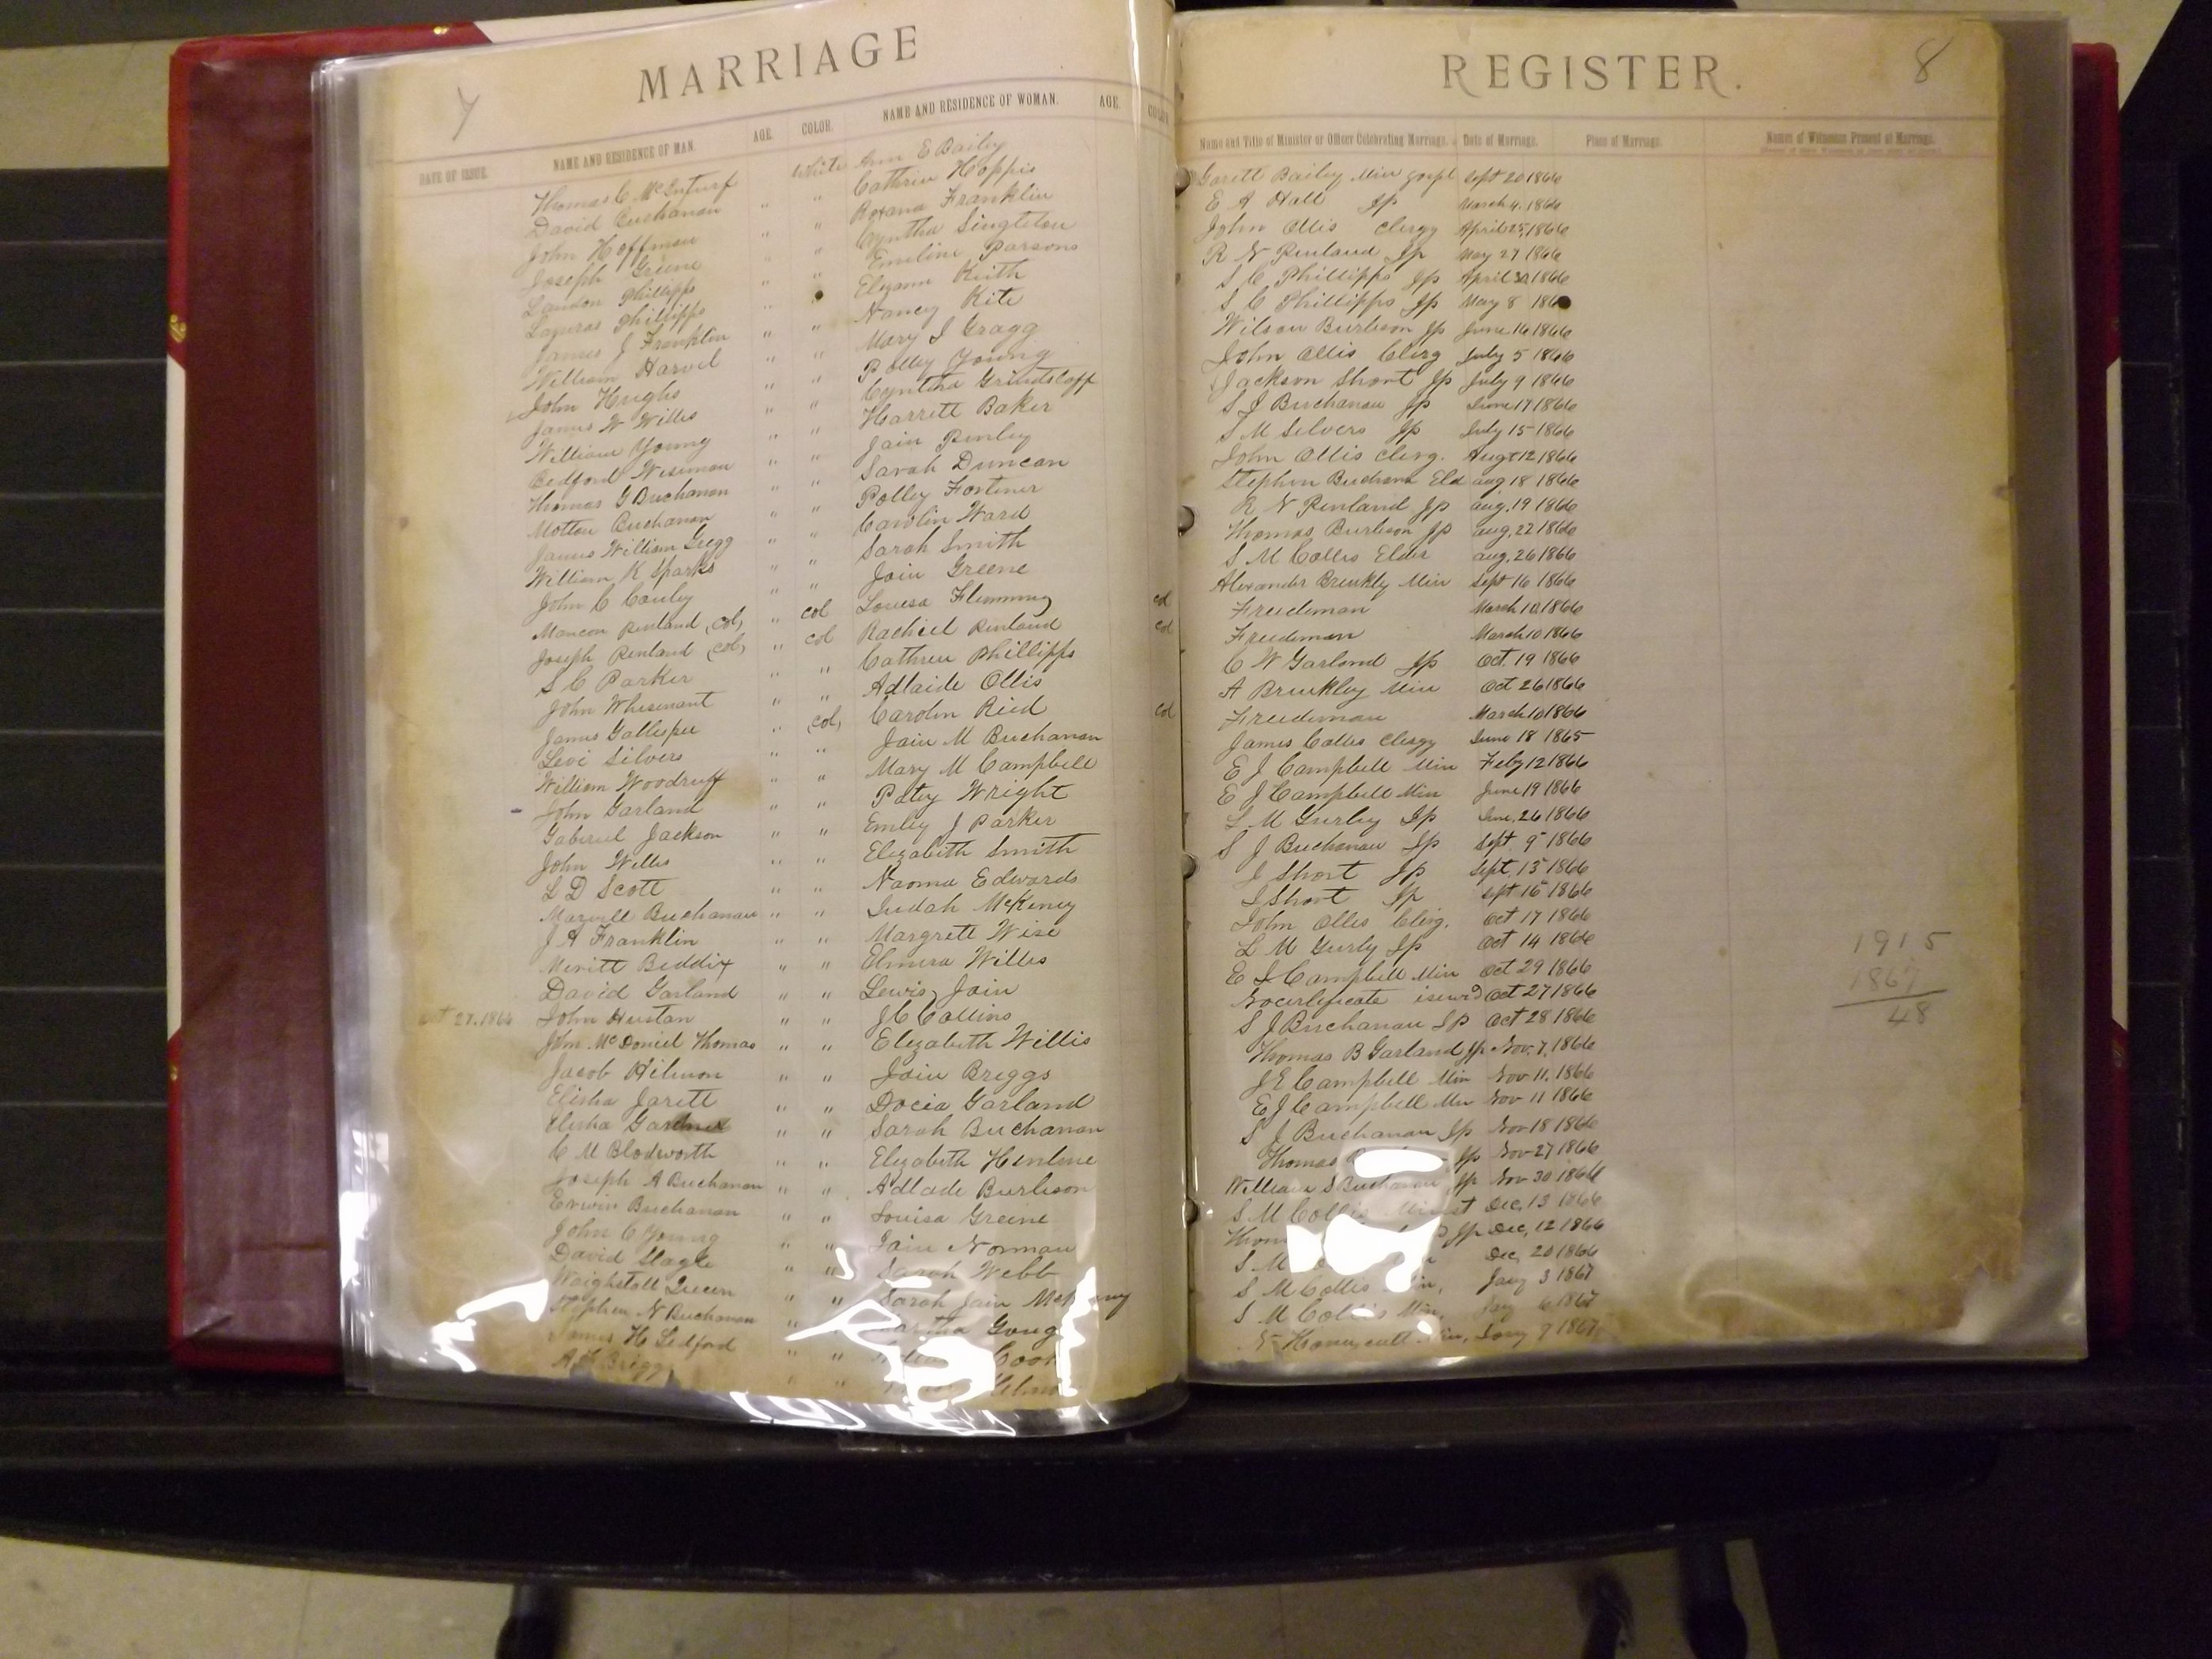 7
MARRIAGE
DATE OF ISSUE. NAME AND RESIDENCE OF MAN. AGE. COLOR. NAME AND RESIDENCE OF WOMAN. AGE. COLOR
Thomas C McInturf White Ann E Bailey
David Buchanan " " Cathrin Hoppis
John Hoffman " " Roxana Franklin
Joseph Greene " " Cyntha Singleton
Landon Phillipps " Emeline Parsons
Lazuras Phillipps " " Elezann Keith
James J Franklin " " Nancy Kite
William Harvel " " Mary J Gragg
John Hughs " " Polly Young
James W Willis " " Cyntha Grindstaff
William Young " " Harrett Baker
Bedford Wiseman " " Jain Penley
Thomas G Buchanan " " Sarah Duncan
Motton Buchanan " " Polley Fortiner
James William Gregg " " Carolin Ward
William K Sparks " " Sarah Smith
John C Conley " " Jain Greene
Mancon Penland (col) " col Louesa Flemming col
Joseph Penland (col) " col Rachiel Penland col
S C Parker " " Cathren Phillipps
John Whisenant " " Adlaide Ollis
James Gallispee " col, Carolin Reed col
Levi Silvers " " Jain M Buchanan
William Woodruff " " Mary M Campbell
John Garland " " Patcy Wright
Gaberiel Jackson " " Emley J Parker
John Willis " " Elezabith Smith
L D Scott " " Naoma Edwards
Maxwell Buchanan " " Judah McKiney
J A Franklin " " Margrett Wise
Meritt Beddix " " Elmira Willis
David Garland " " Lewis, Jain
Oct 27. 1866 John Hustan " " J C Collins
John McDoniel Thomas " " Elezabuth Willis
Jacob Hilmon " " Jain Breggs
Elisha Jarett " " Docia Garland
Elisha " " Sarah Buchanan
C M Blodworth " " Elezabith Henline
Joseph A Buchanan " " Adlade Burleson
Erwin Buchanan " " Louisa Greene
John C Young " " Jain Norman
David Slagle " " Sarah Webb
Waighstill Queen " " Sarah Jain
Stephen N Buchanan " "
James H Ledford " "
A " "
REGISTER.
8
Name and Title of Minister or Officer Celebrating Marriage. Date of Marriage. Place of Marriage. Names of Witnesses Present at Marriage.
Garett Bailey Min gospl Sept 20 1866
E A Hall Jp March 4. 1866
John Ollis Clergy April 25, 1866
R N Penland Jp May 27 1866
S C Phillipps Jp April 30 1866
S C Phillipps Jp May 8 186
Wilson Burleson Jp June 16 1866
John Ollis Clerg July 5 1866
Jackson Short Jp July 9 1866
S J Buchanan Jp June 17 1866
S M Silvers Jp July 15 1866
John Ollis Clerg. Augt 12 1866
Stephen Buchanan Eld aug 18 1866
R N Penland Jp aug. 19 1866
Thomas Burleson Jp aug. 22 1866
S M Collis Elder aug. 26 1866
Alexander Brinkly Min Sept 16 1866
Freedeman March 10, 1866
Freedeman March 10 1866
C W Garland Jp Oct. 19 1866
A Brinkley Min Oct 26 1866
Freedeman March 10 1866
James Collis Clergy June 18 1865
E J Campbell Min Feby 12 1866
E J Campbell Min June 19 1866
L M Gurley Jp June. 26 1866
S J Buchanan Jp Sept. 9 1866
J Short Jp Sept. 13 1866
J Short Jp Sept 16 1866
John Ollis Clerg. Oct 17 1866
L M Gurly Jp Oct 14 1866
E J Campbell Min Oct 29 1866
No certificate isewed Oct 27 1866
S J Buchanan Jp Oct 28 1866
Thomas B Garland Jp Nov. 7, 1866
J E Campbell Min Nov 11. 1866
E J Campbell Min Nov 11 1866
S J Buchanan Jp Nov 18 1866
Thomas Jp Nov 27 1866
William S Buchanan Jp Nov 30 1866
S M Collis Dec, 13 1866
Jp Dec, 12 1866
S M Dec, 20 1866
S M Collis Jany 3 1867
S M Collis Min, Jany 6 1867
Honeycutt Jany 9 1867
1915
1867
48